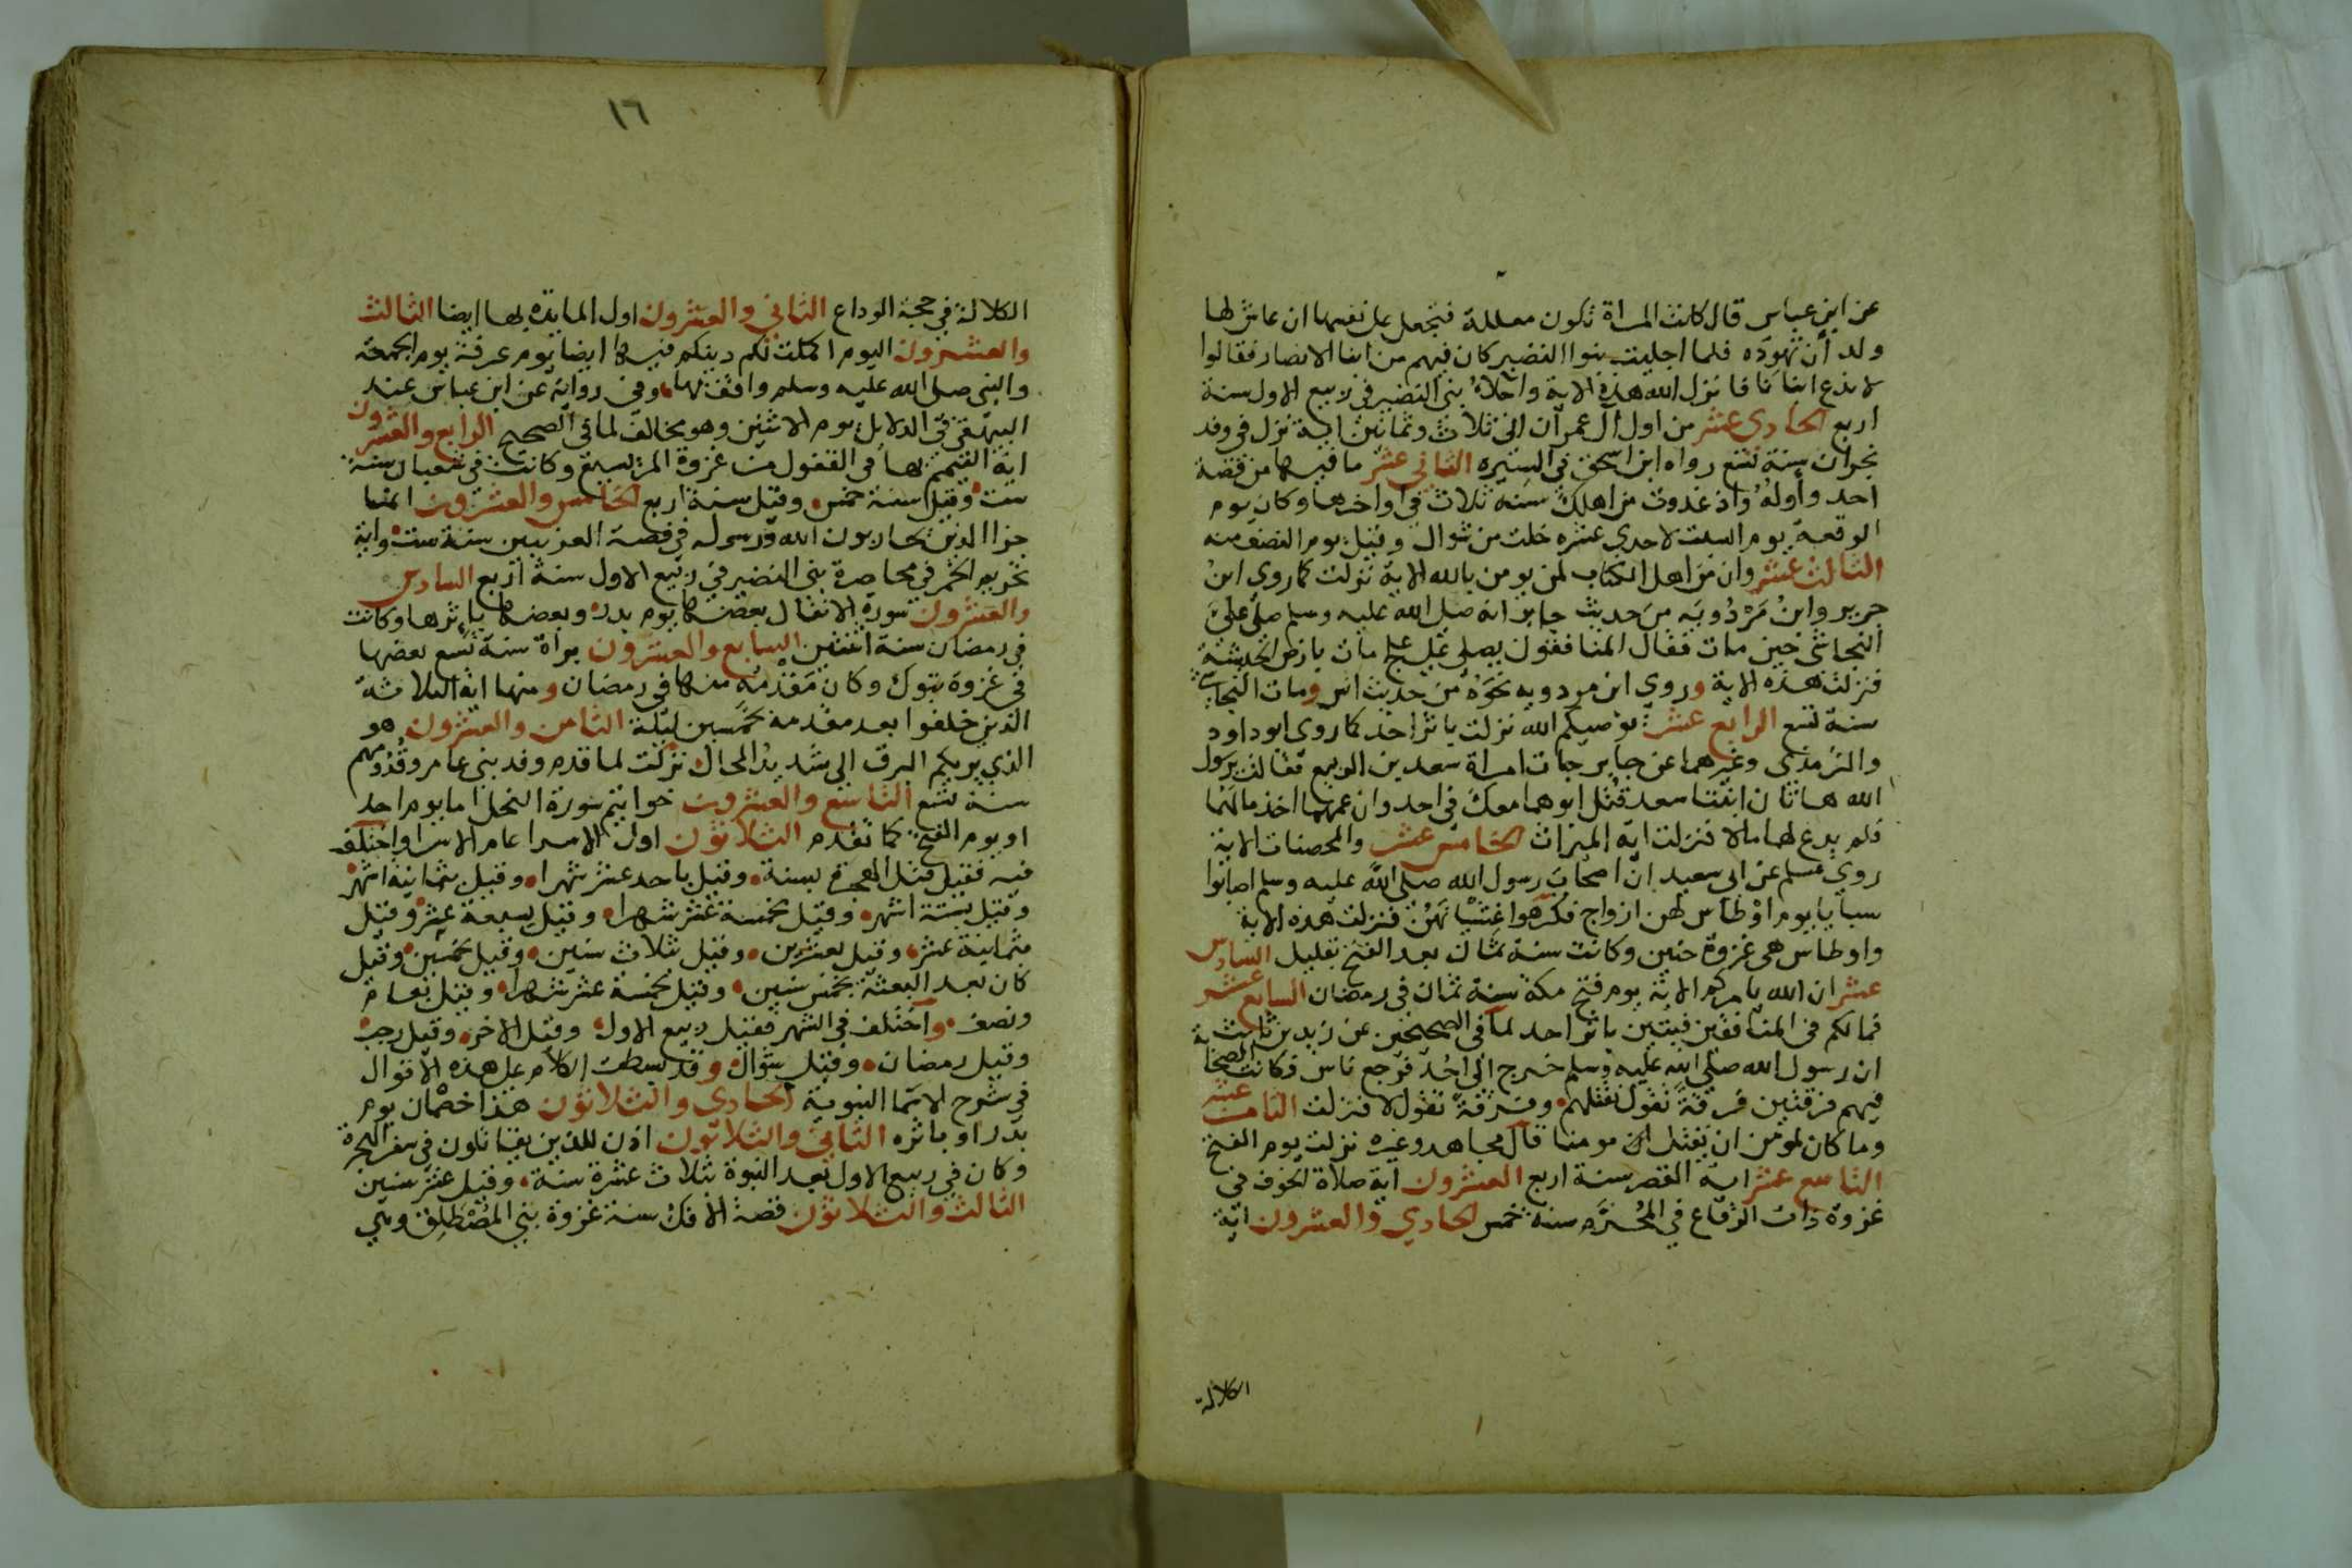 عن ابن عباس قال كانت المراة تكون معللة فتجعل على نفسها ان عاش لها
ولد أن تهوده فلما اجليت بنوا النضير كان فيهم من ابنا الانصار فقالوا
لا ندع ابنانا فانزل الله هذه الاية واجلاء بني النضير في ربيع الاول سنة
اربع الحادي عشر من اول ال عمران الى ثلاث وثمانين اية نزل في وفد
نجران سنة تسع رواه ابن اسحق في السيره الثاني عشر ما فيها من قصة
احد وأوله واذ غدوت من اهلك سنة ثلاث في اواخرها وكان يوم
الوقعة يوم السبت لاحدى عشره خلت من شوال وقيل يوم النصف منه
الثالث عشر وان من اهل الكتاب لمن يومن بالله الاية نزلت كما روى ابن
جرير وابن مردويه من حديث جابر انه صلى الله عليه وسلم صلى على
النجاشي حين مات فقال المنافقون يصلي على علج مات بارض الحبشة
فنزلت هذه الاية وروى ابن مردويه نحوه من حديث انس ومات النجاشي
سنة تسع الرابع عشر يوصيكم الله نزلت باثر احد كما روى ابو داود
والترمذي وغيرهما عن جابر جات امراة سعد بن الربيع فقالت يرسول
الله هاتان ابنتا سعد قتل ابوهما معك في احد وان عمهما اخذ مالهما
فلم يدع لهما مالا فنزلت اية الميراث الخامس عشر والمحصنات الاية
روى مسلم عن ابي سعيد ان اصحاب رسول الله صلى الله عليه وسلم اصابوا
سبايا يوم اوطاس لهن ازواج فكرهوا غشيانهن فنزلت هذه الاية
واوطاس هي غزوة حنين وكانت سنة ثمان بعد الفتح بقليل السادس
عشر ان الله يامركم الاية يوم فتح مكة سنة ثمان في رمضان السابع عشر
فما لكم في المنافقين فيتين باثر احد لما في الصحيحين عن زيد بن ثابت
ان رسول الله صلى الله عليه وسلم خرج الى احد فرجع ناس فكانت الصحابة
فيهم فرقتين فرقة تقول نقتلهم وفرقة تقول لا فنزلت الثامن عشر
وما كان لمومن ان يقتل مومنا قال مجاهد وغيره نزلت يوم الفتح
التاسع عشر اية القصر سنة اربع العشرون اية صلاة الخوف في
غزوة ذات الرقاع في المحرم سنة خمس الحادي والعشرون اية
الكلالة
١٦
الكلالة في حجة الوداع الثاني والعشرون اول المايدة بها ايضا الثالث
والعشرون اليوم اكملت لكم دينكم فيها ايضا يوم عرفة يوم الجمعة
والنبي صلى الله عليه وسلم واقف بها وفي رواية عن ابن عباس عند
البيهقي في الدلايل يوم الاثنين وهو مخالف لما في الصحيح الرابع والعشرون
اية التيمم بها في القفول من غزوة المريسيع وكانت في شعبان سنة
ست وقيل سنة خمس وقيل سنة اربع الخامس والعشرون انما
جزا الذين يحاربون الله ورسوله في قصة العرنيين سنة ست واية
تحريم الخمر في محاصرة بني النضير في ربيع الاول سنة اربع السادس
والعشرون سورة الانفال بعضها يوم بدر وبعضها باثرها وكانت
في رمضان سنة اثنتين السابع والعشرون براة سنة تسع بعضها
في غزوة تبوك وكان مقدمه منها في رمضان ومنها اية الثلاثة
الذين خلفوا بعد مقدمه بخمسين ليلة الثامن والعشرون هو
الذي يريكم البرق الى شديد المحال نزلت لما قدم وفد بني عامر وقدومهم
سنة تسع التاسع والعشرون خواتيم سورة النحل اما يوم احد
او يوم الفتح كما تقدم الثلاثون اول الاسرا عام الاسرا واختلف
فيه فقيل قبل الهجرة بسنة وقيل باحد عشر شهرا وقيل بثمانية اشهر
وقيل بستة اشهر وقيل بخمسة عشر شهرا وقيل بسبعة عشر وقيل
بثمانية عشر وقيل بعشرين وقيل بثلاث سنين وقيل بخمسين وقيل
كان بعد البعثة بخمس سنين وقيل بخمسة عشر شهرا وقيل بعام
ونصف واختلف في الشهر فقيل ربيع الاول وقيل الاخر وقيل رجب
وقيل رمضان وقيل شوال وقد بسطت الكلام على هذه الاقوال
في شرح الاسما النبوية الحادي والثلاثون هذا خصمان يوم
بدر او باثره الثاني والثلاثون اذن للذين يقاتلون في سفر الهجرة
وكان في ربيع الاول بعد النبوة بثلاث عشرة سنة وقيل عشر سنين
الثالث والثلاثون قصة الافك سنة غزوة بني المصطلق وهي